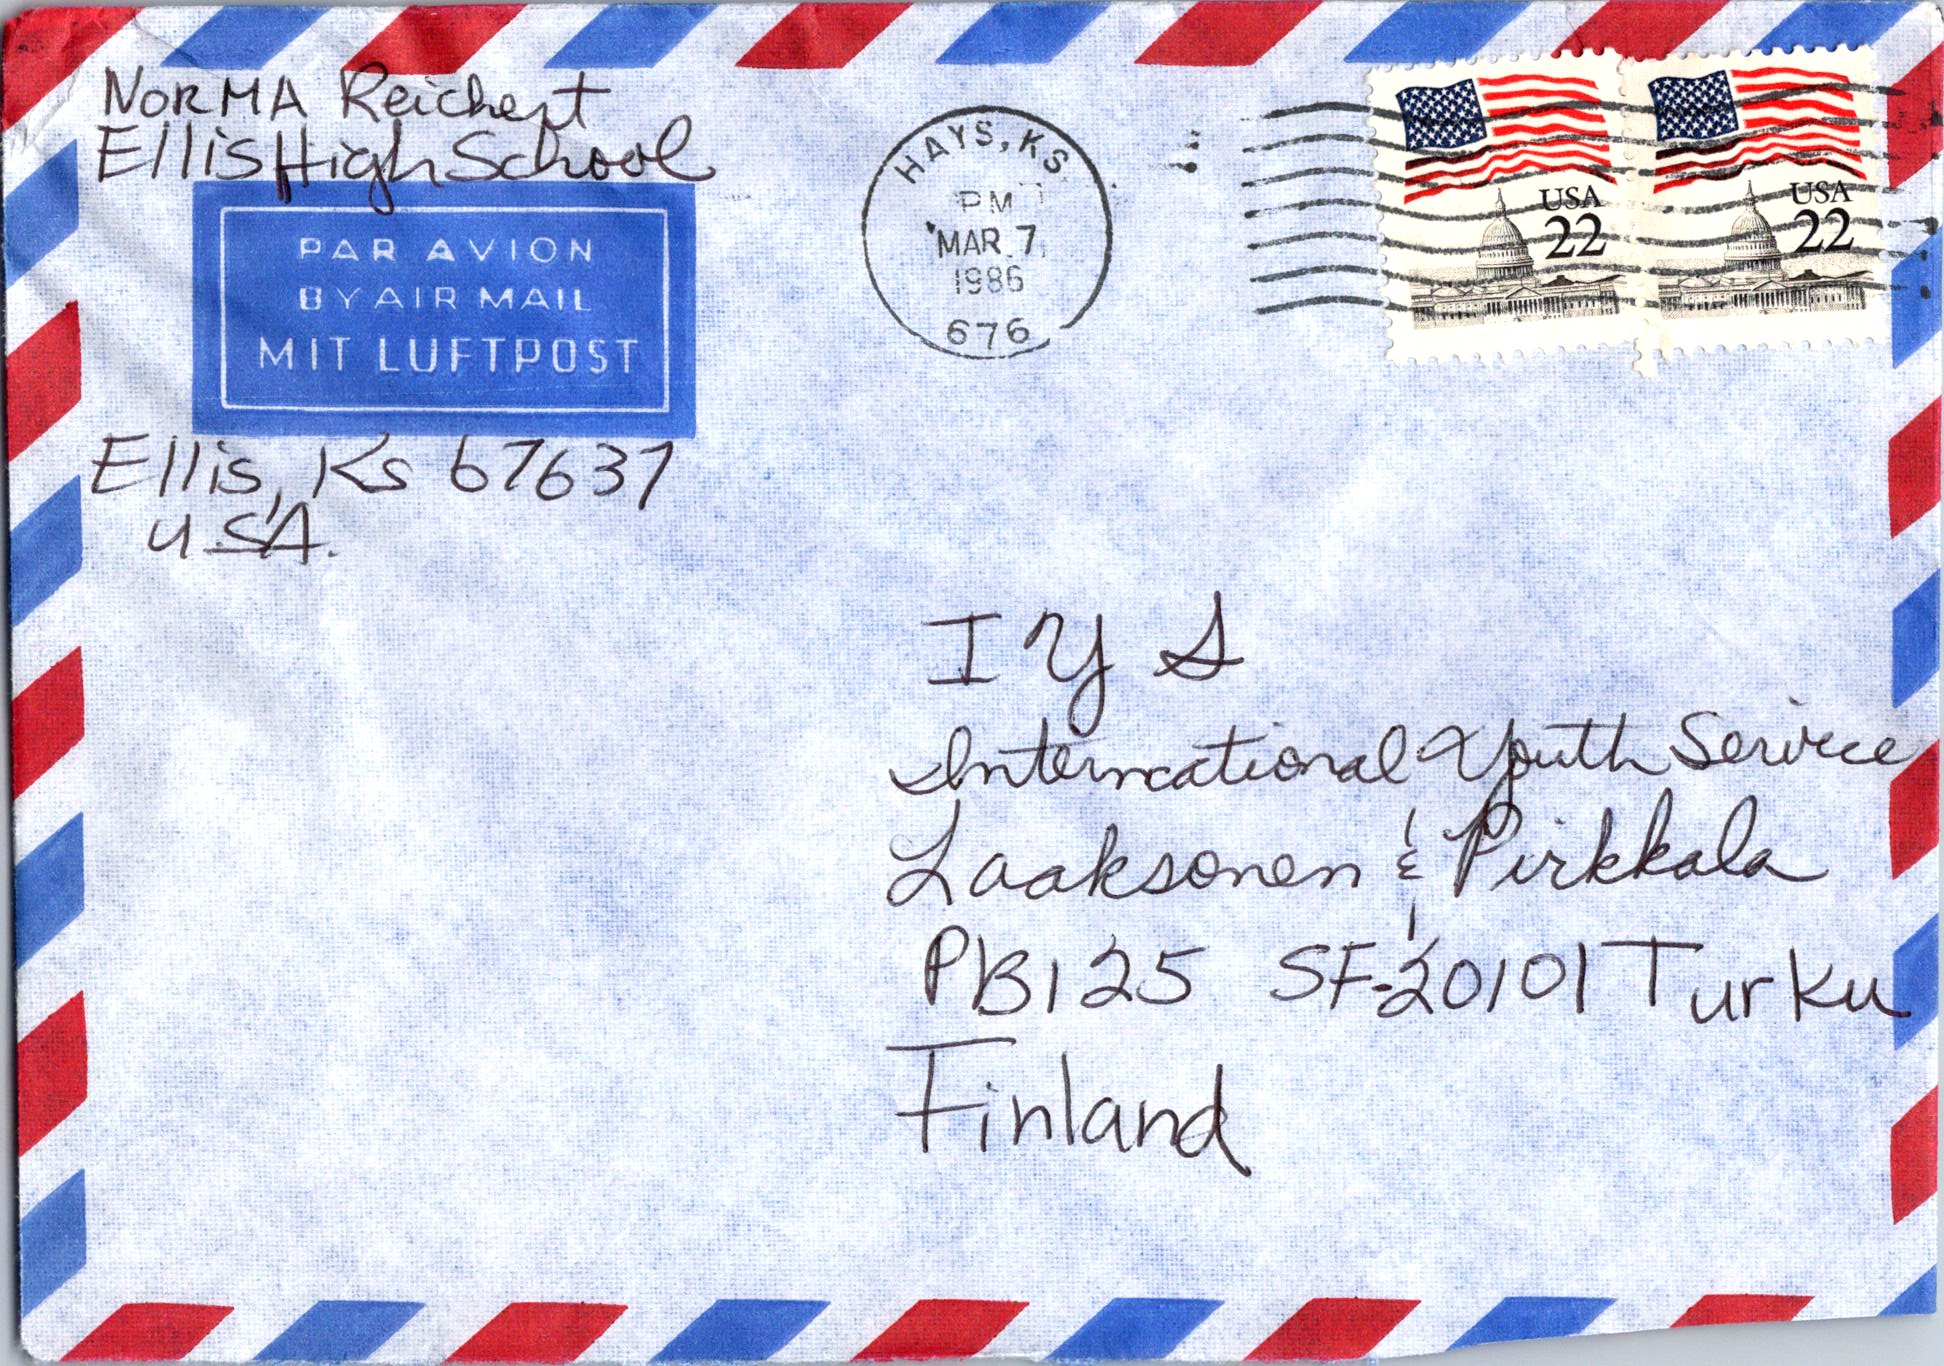 NORMA Reichert
Ellis High School
PAR AVION
BY AIR MAIL
MIT LUFTPOST
Ellis, Ks 67637
U.S.A.
HAYS, KS
PM
MAR 7
1986
676
USA
22
USA
22
I Y S
International Youth Service
Laaksonen & Pirkkala
PB 125 SF-20101 Turku
Finland